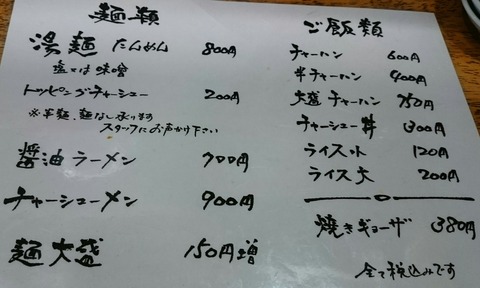 麺類
湯麺 たんめん 800円
塩又は味噌
トッピングチャーシュー 200円
※半麺、麺なし承ります
スタッフにお声がけ下さい
醤油ラーメン 700円
チャーシューメン 900円
麺大盛 150円増
ご飯類
チャーハン 600円
半チャーハン 400円
大盛チャーハン 750円
チャーシュー丼 300円
ライス小 120円
ライス大 200円
焼きギョーザ 380円
全て税込みです